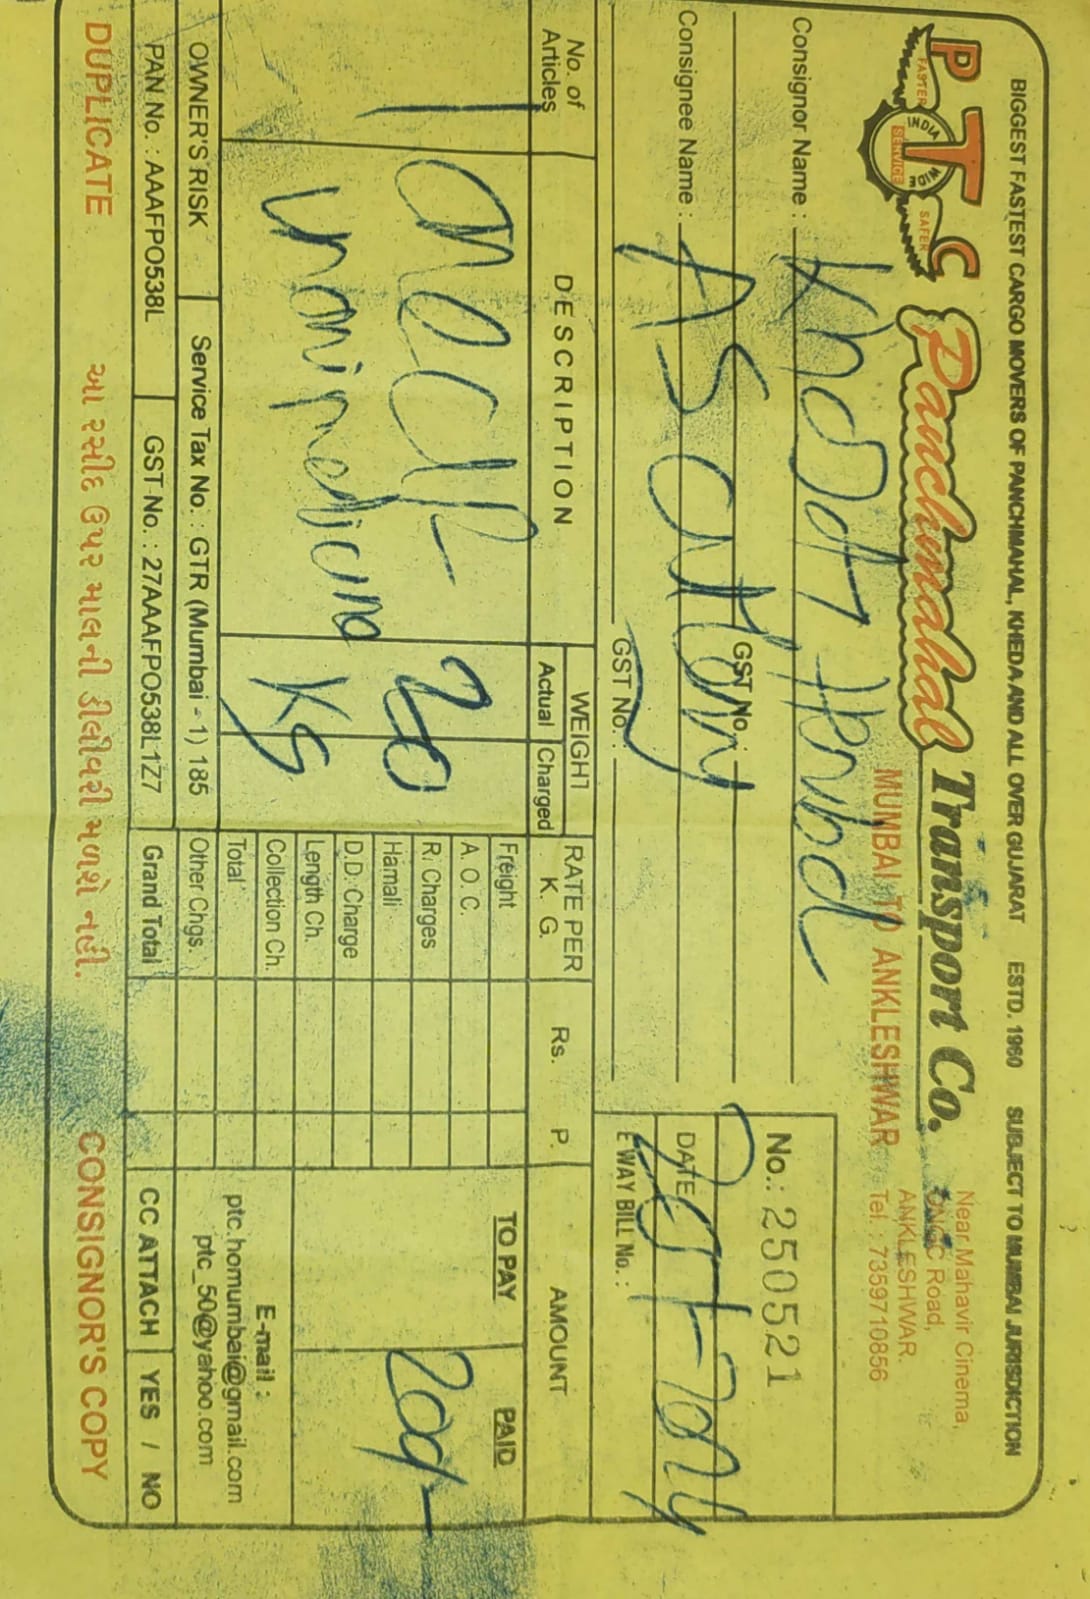 BIGGEST FASTEST CARGO MOVERS OF PANCHMAHAL, KHEDA AND ALL OVER GUJARAT ESTD. 1960 SUBJECT TO MUMBAI JURISDICTION
PTC
FASTER INDIA WIDE SAFER
SERVICE
Panchmahal Transport Co.
MUMBAI TO ANKLESHWAR
Near Mahavir Cinema,
ONGC Road,
ANKLESHWAR.
Tel. : 7359710856
Consignor Name :
GST No. :
Consignee Name :
GST No. :
No.: 250521
DATE
E WAY BILL No. :
No. of Articles
DESCRIPTION
WEIGHT
Actual Charged
RATE PER K. G.
Rs. P.
AMOUNT
1
20
KG
Freight
A. O. C.
R. Charges
Hamali
D.D. Charge
Length Ch.
Collection Ch.
Total
Other Chgs.
Grand Total
TO PAY
PAID
E-mail :
ptc.homumbai@gmail.com
ptc_50@yahoo.com
OWNER'S RISK Service Tax No. : GTR (Mumbai - 1) 185
PAN No. : AAAFPO538L GST No. : 27AAAFPO538L1Z7
CC ATTACH YES / NO
DUPLICATE આ રસીદ ઉપર માલની ડીલીવરી મળશે નહી. CONSIGNOR'S COPY